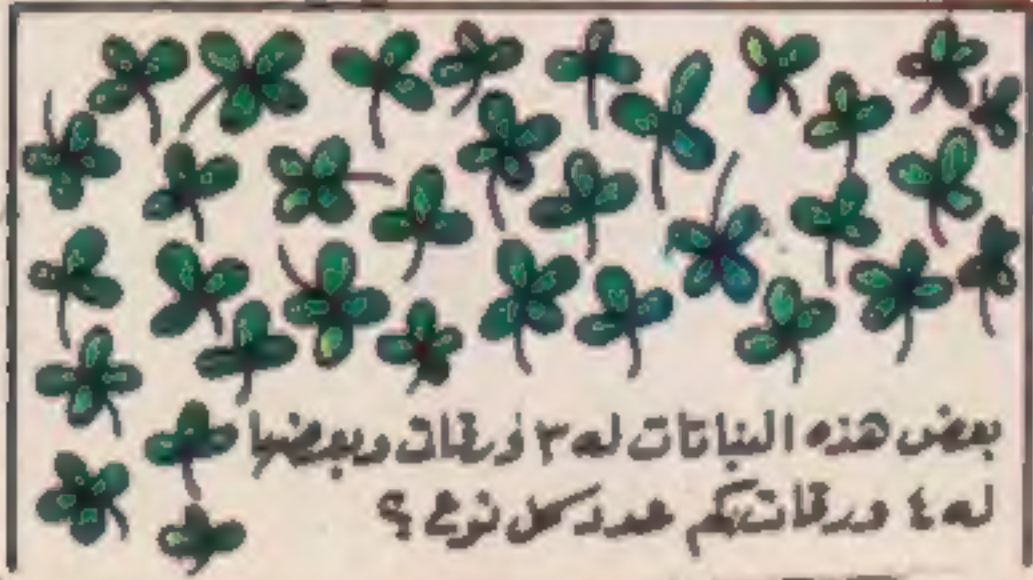 بعض هذه النباتات له ٣ ورقات وبعضها
له ٤ ورقات فكم عدد كل نوع ؟